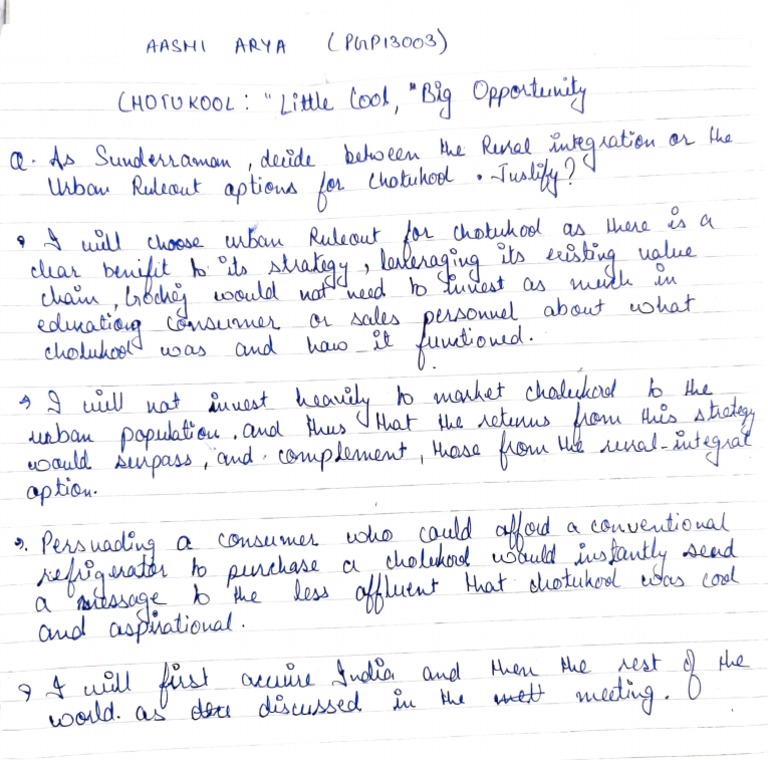 AASHI ARYA (PGP13003)
CHOTUKOOL: "Little Cool, "Big Opportunity
Q. As Sunderraman, decide between the Rural integration or the
Urban Ruleout options for Chotukool. Justify?
I will choose urban Ruleout for chotukool as there is a
clear benifit to its strategy, leveraging its existing value
chain, Godrej would not need to invest as much in
educationg consumer or sales personnel about what
chotukool was and how it functioned.
I will not invest heavily to market chotukool to the
urban population. and thus that the returns from this strategy
would surpass, and complement, those from the rural-integrat
option.
Persuading a consumer who could afford a conventional
refrigerator to purchase a chotukool would instantly send
a message to the less affluent that chotukool was cool
and aspirational.
I will first acquire India and then the rest of the
world. as discussed in the meeting.